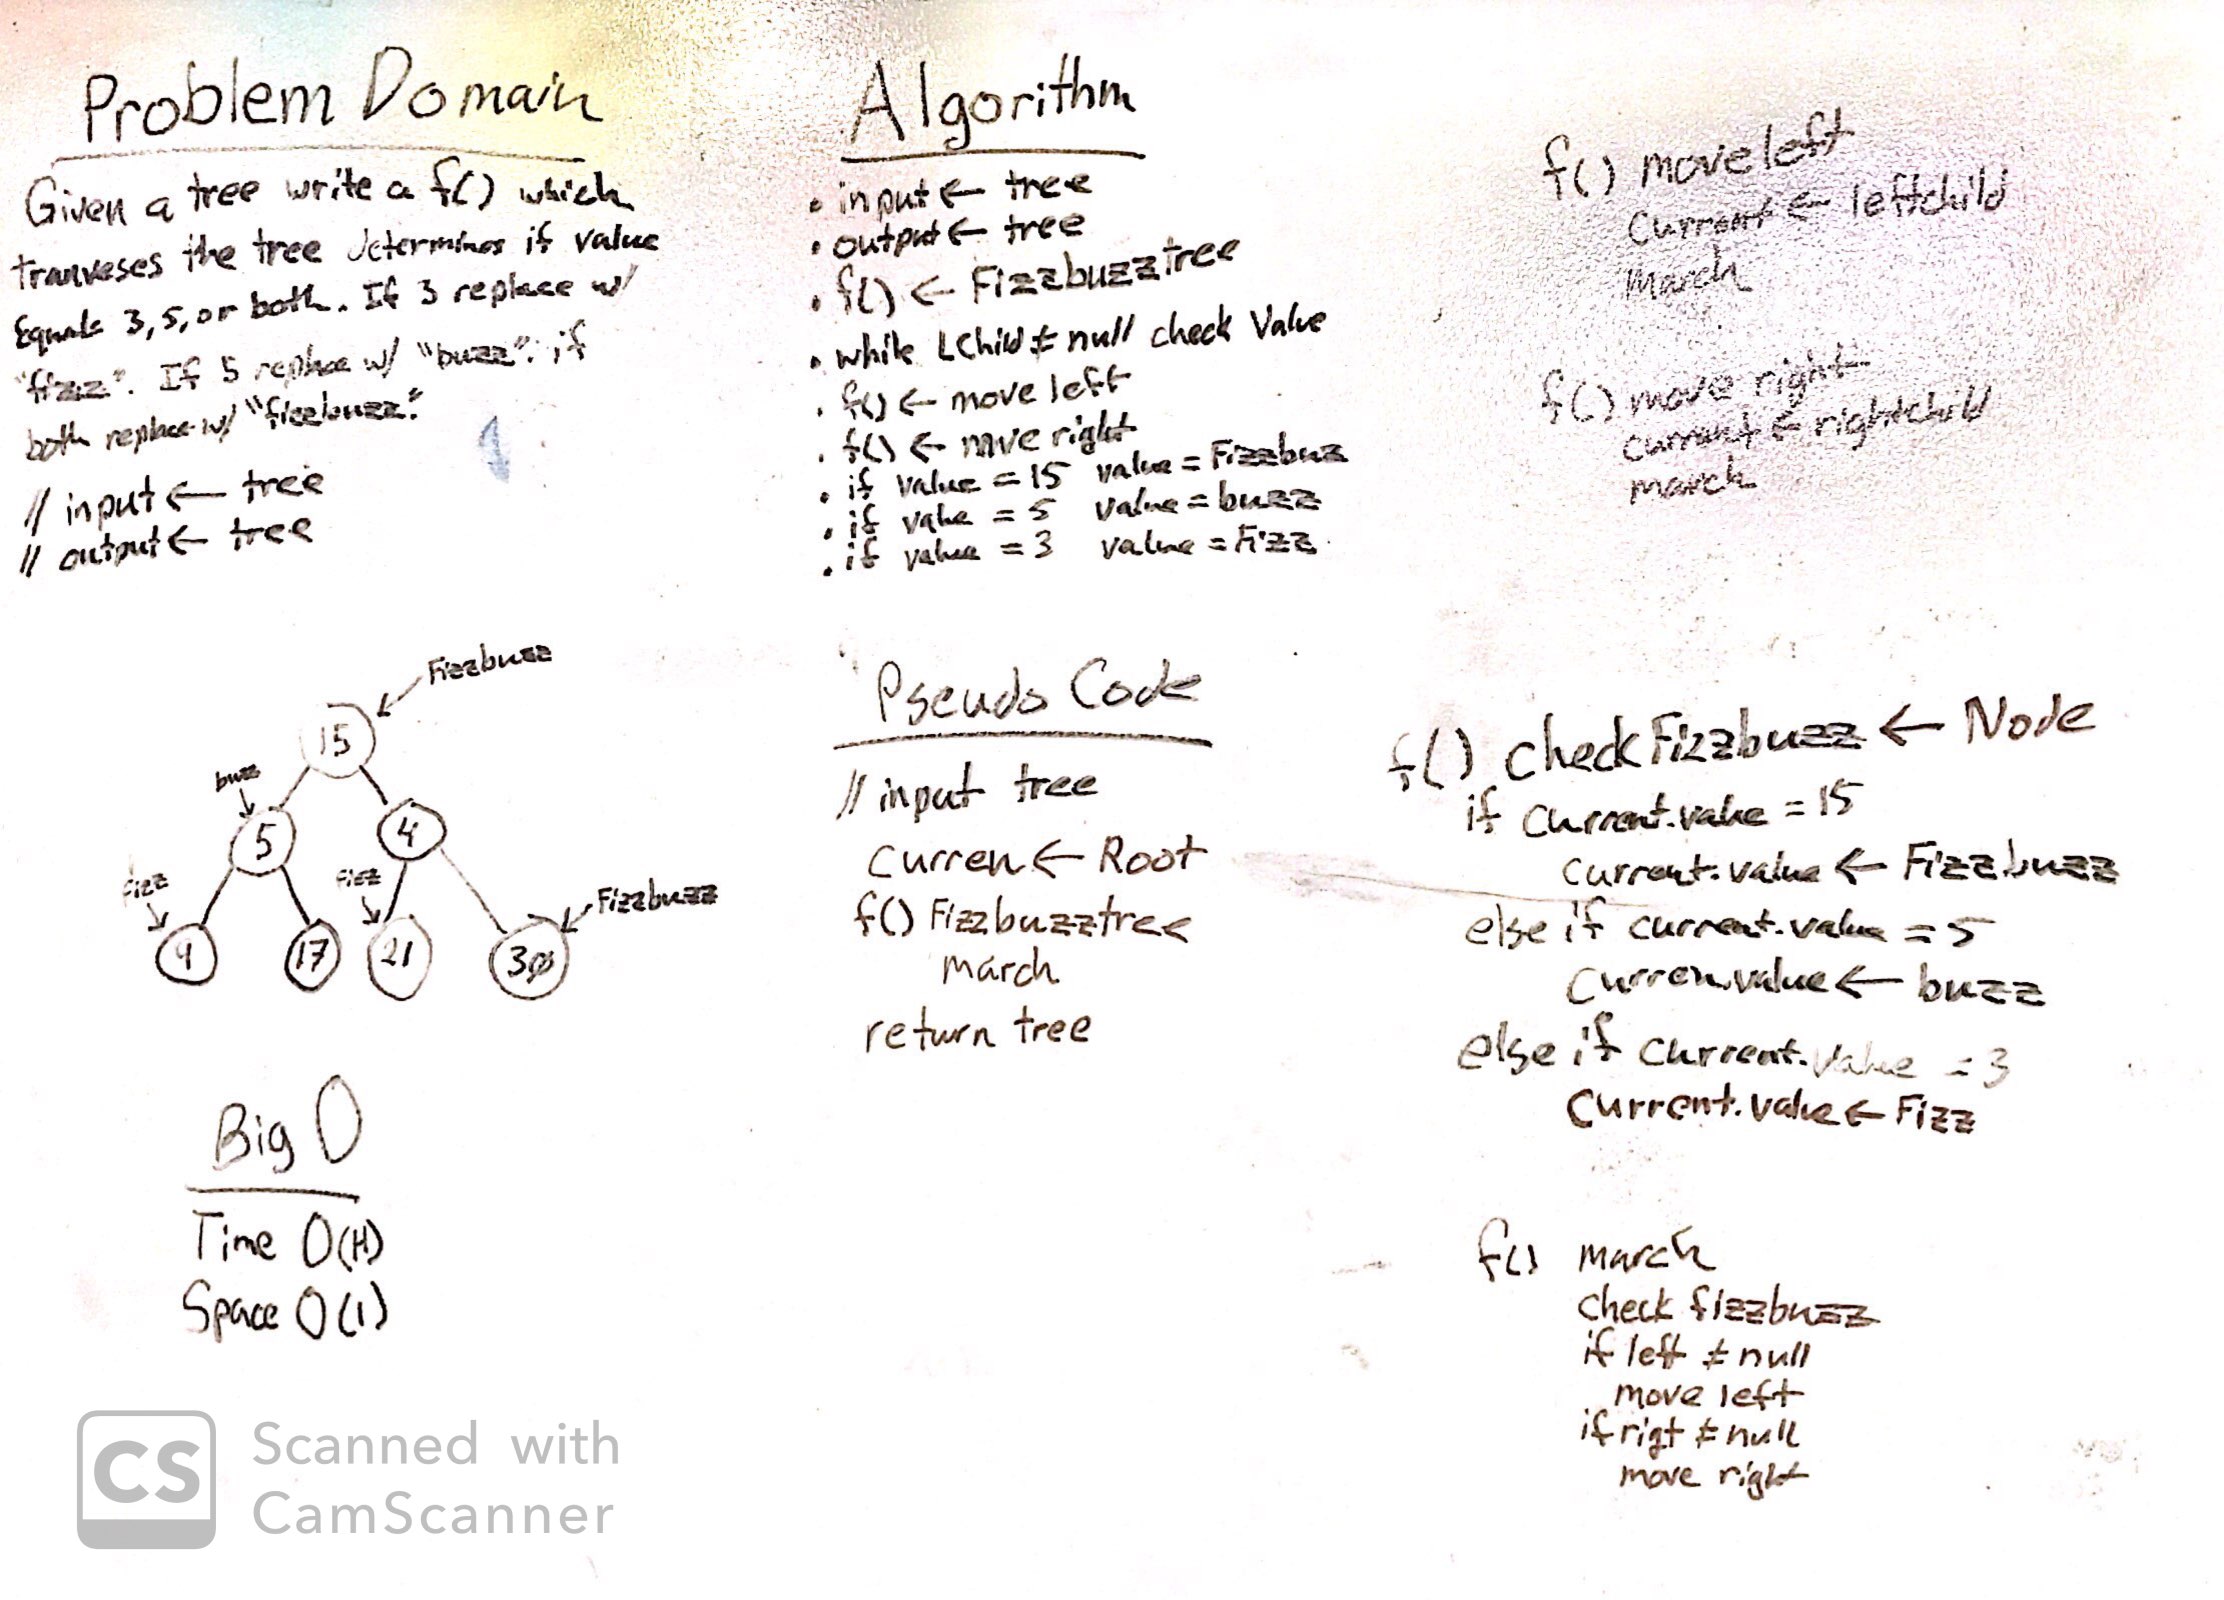 Problem Domain
Given a tree write a f() which
tranveses the tree determines if value
Equals 3, 5, or both. If 3 replace w/
"fizz". If 5 replace w/ "buzz". if
both replace w/ "fizzbuzz."
// input ← tree
// output ← tree
Fizzbuzz
15
buzz
5
4
fizz
fizz
Fizzbuzz
9
17
21
30
Big O
Time O(H)
Space O(1)
Algorithm
• input ← tree
• output ← tree
• f() ← Fizzbuzztree
• while LChild ≠ null check Value
• f() ← move left
• f() ← move right
• if value = 15 value = Fizzbuzz
• if value = 5 value = buzz
• if value = 3 value = Fizz
Pseudo Code
// input tree
curren ← Root
f() Fizzbuzztree
march
return tree
f() move left
Current ← leftchild
March
f() move right
current ← rightchild
march
f() checkFizzbuzz ← Node
if Current.value = 15
Current.value ← Fizzbuzz
else if current.value = 5
Curren.value ← buzz
else if Current.value = 3
Current.value ← Fizz
f() march
check fizzbuzz
if left ≠ null
move left
if rigt ≠ null
move right
CS
Scanned with
CamScanner